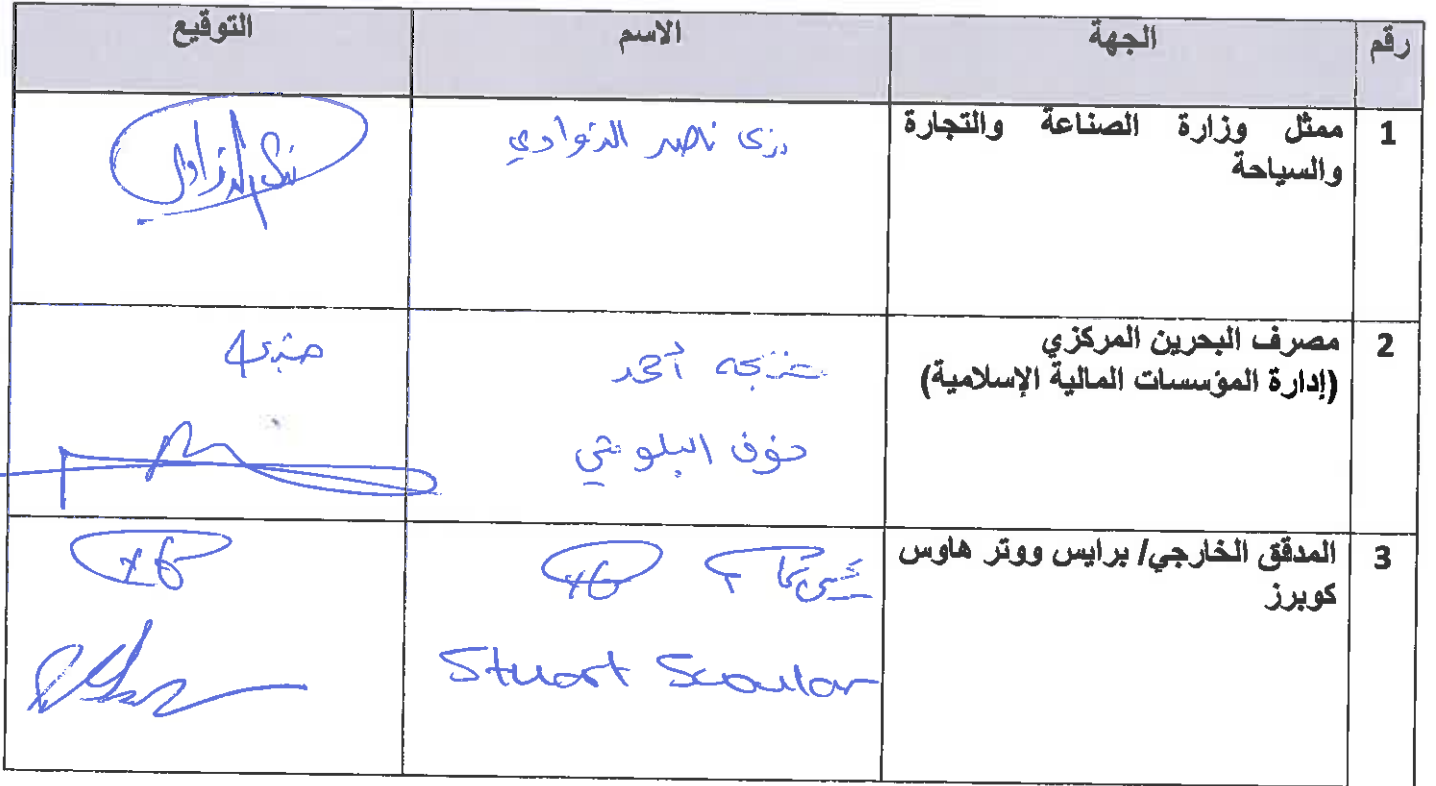 رقم الجهة الاسم التوقيع
1 ممثل وزارة الصناعة والتجارة ناصر الذوادي
والسياحة
2 مصرف البحرين المركزي
(إدارة المؤسسات المالية الإسلامية) أحمد
البلوشي
3 المدقق الخارجي/ برايس ووتر هاوس
كوبرز
Stuart Scoular